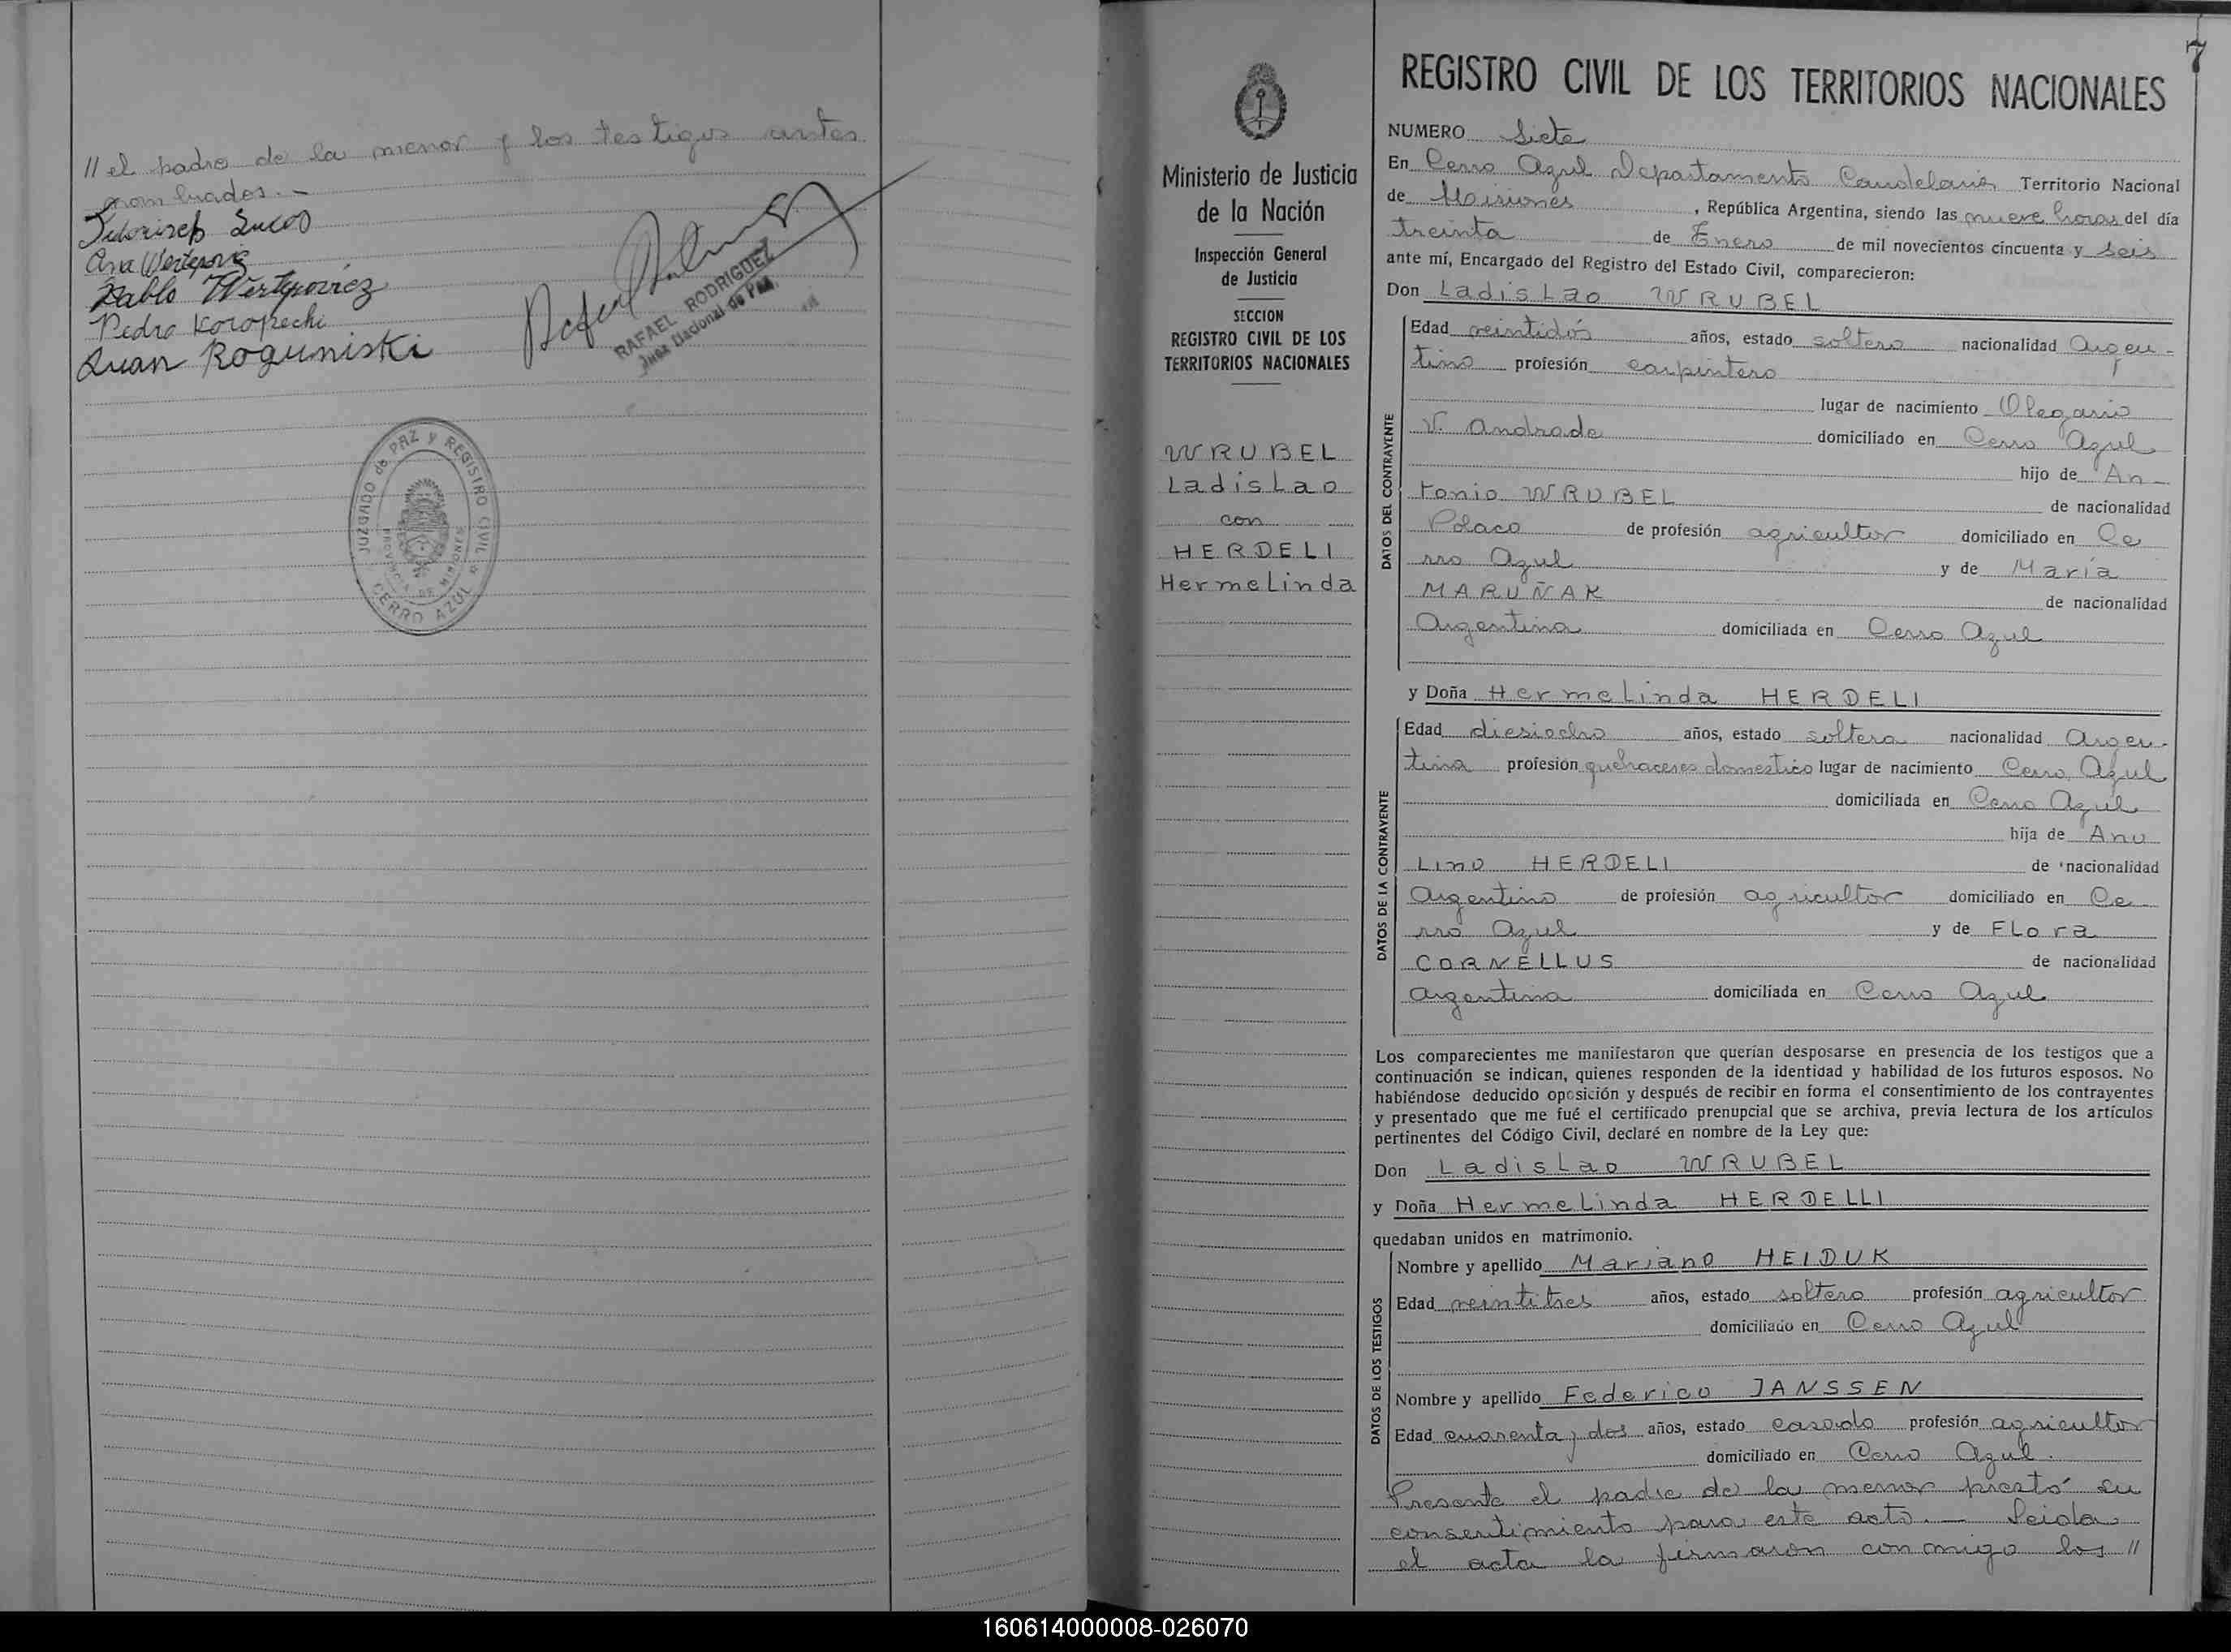 // el padre de la menor y los testigos antes
nombrados. -
Lucas
Ana Wertepovig
Pablo Wertgrovicz
Pedro Koropechi
Juan Roguniski
RAFAEL RODRIGUEZ
Juez Nacional de Paz
JUZGADO de PAZ y REGISTRO CIVIL
PROVINCIA DE MISIONES
CERRO AZUL
7
Ministerio de Justicia
de la Nación
Inspección General
de Justicia
SECCION
REGISTRO CIVIL DE LOS
TERRITORIOS NACIONALES
WRUBEL
Ladislao
con
HERDELI
Hermelinda
REGISTRO CIVIL DE LOS TERRITORIOS NACIONALES
NUMERO Siete
En Cerro Azul Departamento Candelaria Territorio Nacional
de Misiones, República Argentina, siendo las nueve horas del día
treinta de Enero de mil novecientos cincuenta y seis
ante mí, Encargado del Registro del Estado Civil, comparecieron:
Don Ladislao WRUBEL
DATOS DEL CONTRAYENTE
Edad veintidós años, estado soltero nacionalidad Argen-
tino profesión carpintero
lugar de nacimiento Olegario
V. Andrade domiciliado en Cerro Azul
hijo de An-
tonio WRUBEL de nacionalidad
Polaco de profesión agricultor domiciliado en Ce
rro Azul y de María
MARUÑAK de nacionalidad
Argentina domiciliada en Cerro Azul
y Doña Hermelinda HERDELI
DATOS DE LA CONTRAYENTE
Edad diesiocho años, estado soltera nacionalidad Argen-
tina profesión quehaceres domestico lugar de nacimiento Cerro Azul
domiciliada en Cerro Azul
hija de Anu
Lino HERDELI de nacionalidad
Argentino de profesión agricultor domiciliado en Ce-
rro Azul y de FLora
CORNELLUS de nacionalidad
Argentina domiciliada en Cerro Azul
Los comparecientes me manifestaron que querían desposarse en presencia de los testigos que a
continuación se indican, quienes responden de la identidad y habilidad de los futuros esposos. No
habiéndose deducido oposición y después de recibir en forma el consentimiento de los contrayentes
y presentado que me fué el certificado prenupcial que se archiva, previa lectura de los artículos
pertinentes del Código Civil, declaré en nombre de la Ley que:
Don Ladislao WRUBEL
y Doña Hermelinda HERDELLI
quedaban unidos en matrimonio.
DATOS DE LOS TESTIGOS
Nombre y apellido Mariano HEIDUK
Edad veintitres años, estado soltero profesión agricultor
domiciliado en Cerro Azul
Nombre y apellido Federico JANSSEN
Edad cuarenta y dos años, estado casado profesión agricultor
domiciliado en Cerro Azul.
Presente el padre de la menor prestó su
consentimiento para este acto. - Leida
el acta la firmaron conmigo los //
160614000008-026070